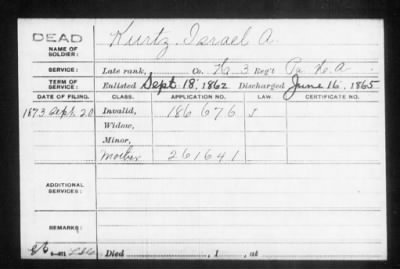 DEAD
NAME OF SOLDIER: Kurtz, Israel A.
SERVICE: Late rank, Co. H 3 Reg't Pa. H. A.
TERM OF SERVICE: Enlisted Sept. 18, 1862 Discharged June 16, 1865
DATE OF FILING. CLASS. APPLICATION NO. LAW. CERTIFICATE NO.
1873 Sept. 20 Invalid, 186676
Widow,
Minor,
Mother 261641
ADDITIONAL SERVICES:
REMARKS:
Died , 1 , at